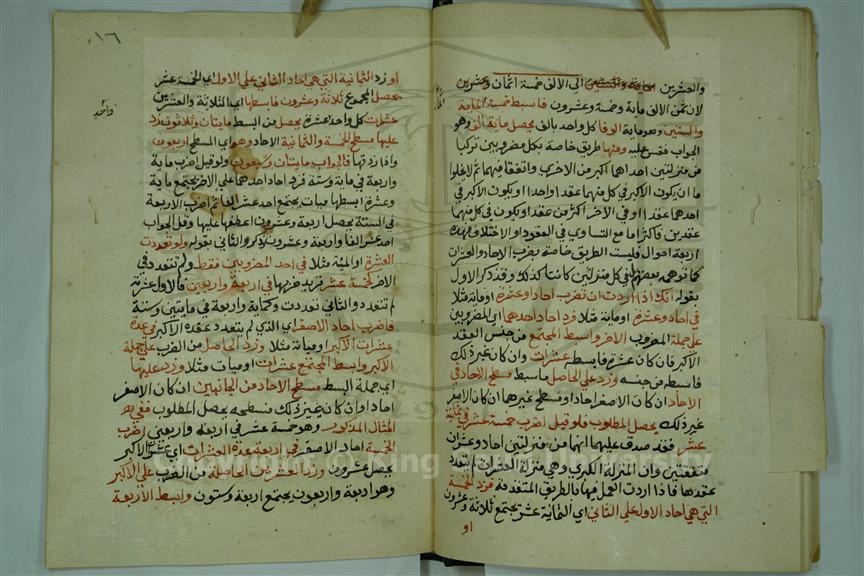 والعشرين الي الالف خمسة اثمان وعشرين
لان ثمن الالف ماية وخمسة وعشرون فابسط خمسة الماية
والستين وهو ماية الوفا كل واحد بالف يحصل ماية الف وهو
الجواب فقس عليه ومنها طريق خاصة بكل مضروبين تركبا
من منزلتين احداهما اكبر من الاخري واتفقا فيهما ثم لا يخلوا
اما ان يكون الاكبر في كل منهما عقدا واحدا او يكون الاكبر في
احدهما عقدا او في الاخر اكثر من عقد او يكون في كل منهما
عقدين فاكثر اما مع التساوي في العقود او الاختلاف فهذه
اربعة احوال فليست الطريق خاصة بضرب الاحاد والعشرات
كما توهمه بعضهم بل في كل منزلتين كانتا كذلك وقد ذكر الاول
بقوله انك اذا اردت ان تضرب احادا وعشرة او ماية مثلا
في احاد وعشرة او ماية مثلا فزد احاد احدهما اي المضروبين
علي جملة المضروب الاخر وابسط المجتمع من جنس العقد
الاكبر فان كان عشرة فابسطه عشرات وان كان غير ذلك
فابسطه من جنسه وزد علي الحاصل ما بسط مسطح الاحاد في
الاحاد ان كان الاصغر احادا او مسطح غيرها ان كان الاصغر
غير ذلك يحصل المطلوب فلو قيل اضرب خمسة عشر في ثمانية
عشر فقد صدق عليهما انهما من منزلتين احاد وعشرات
متفقتين وان المنزلة الكبري وهي منزلة العشرات لم تتعدد
عقدها فاذا اردت العمل فيها بالطريق المتقدمة فزد الخمسة
التي هي احاد الاول علي الثاني اي الثمانية عشر يجتمع ثلاثة وعشرون
او
١٦
واحد
او زد الثمانية التي هي احاد الثاني علي الاول اي الخمسة عشر
يحصل المجموع ثلاثة وعشرون فابسطها اي الثلاثة والعشرين
عشرات كل واحد عشرة يحصل من البسط مايتان وثلاثون زد
عليها مسطح الخمسة والثمانية الاحاد وهو اي المسطح اربعون
واذا زدتها فالجواب مايتان وسبعون ولو قيل اضرب ماية
واربعة في ماية وستة فزد احاد احدهما علي الاخر يجتمع ماية
وعشرة ابسطها ميات يجتمع احد عشر الفا ثم اضرب الاربعة
في الستة يحصل اربعة وعشرون اعطفها عليها وقل الجواب
احد عشر الفا واربعة وعشرون وذكر الثاني بقوله ولو تعددت
العشرة او المئة مثلا في احد المضروبين فقط ولم تتعدد في
الاخر كخمسة عشر تريد ضربها في اربعة واربعين فالاول عشرته
لم تتعدد والثاني تعددت وكماية واربعة في مايتين وستة
فاضرب احاد الاصغر اي الذي لم يتعدد عقده الاكبر في عدة
عشرات الاكبر او مياته مثلا وزد الحاصل من الضرب علي جملة
الاكبر وابسط المجتمع عشرات او ميات مثلا وزد عليها
اي جملة البسط مسطح الاحاد من الجانبين ان كان الاصغر
احادا وان كان غير ذلك فسطحه يحصل المطلوب ففي
المثال المذكور وهو خمسة عشر في اربعة واربعين اضرب
الخمسة احاد الاصغر في اربعة عدة العشرات اي عشرات الاكبر
يحصل عشرون وزد العشرين الحاصلة من الضرب علي الاكبر
وهو اربعة واربعون يجتمع اربعة وستون وابسط الاربعة